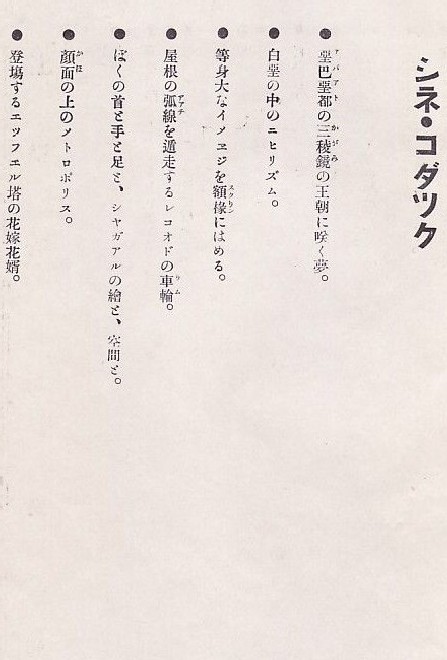 シネ・コダツク
●亜巴亜都の三稜鏡の王朝に咲く夢。
●白亜の中のニヒリズム。
●等身大なイメエジを額椽にはめる。
●屋根の弧線を遁走するレコオドの車輪。
●ぼくの首と手と足と、シヤガアルの繪と、空間と。
●顔面の上のメトロポリス。
●登場するエツフエル塔の花嫁花婿。